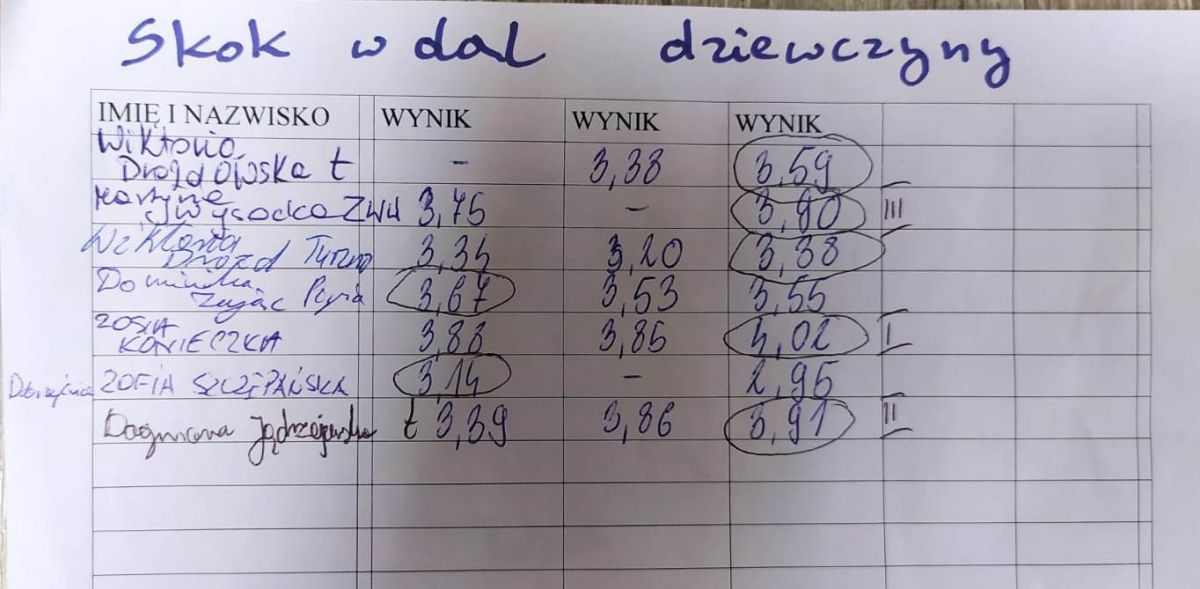 Skok w dal dziewczyny
IMIĘ I NAZWISKO WYNIK WYNIK WYNIK
Wiktoria
Drozdowska Ł - 3,38 3,59
Martyna
Wysocka ZWU 3,75 - 3,90 III
Wiktoria
Drozd Turzno 3,34 3,20 3,38
Dominika
Zając 3,67 3,53 3,55
ZOSIA
KONIECZKA 3,88 3,85 4,02 I
ZOFIA SZCZEPAŃSKA 3,14 - 2,95
Dagmara Jędrzejewska Ł 3,39 3,86 3,91 II